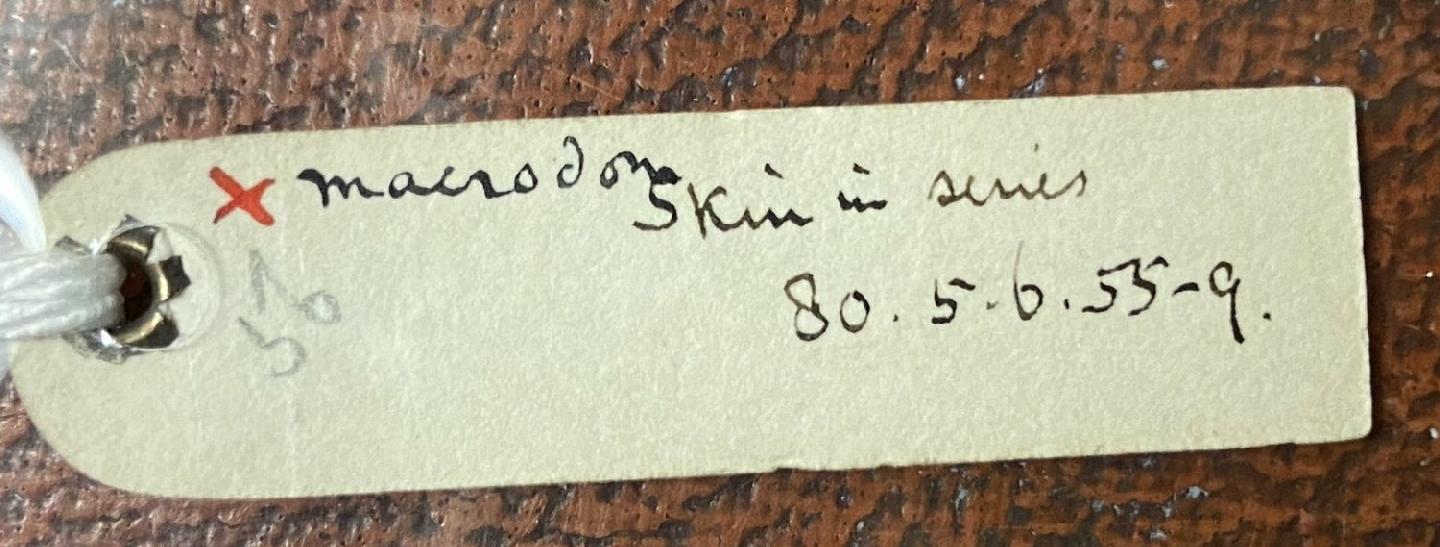 X macrodon Skin in series
80. 5. 6. 55-9.